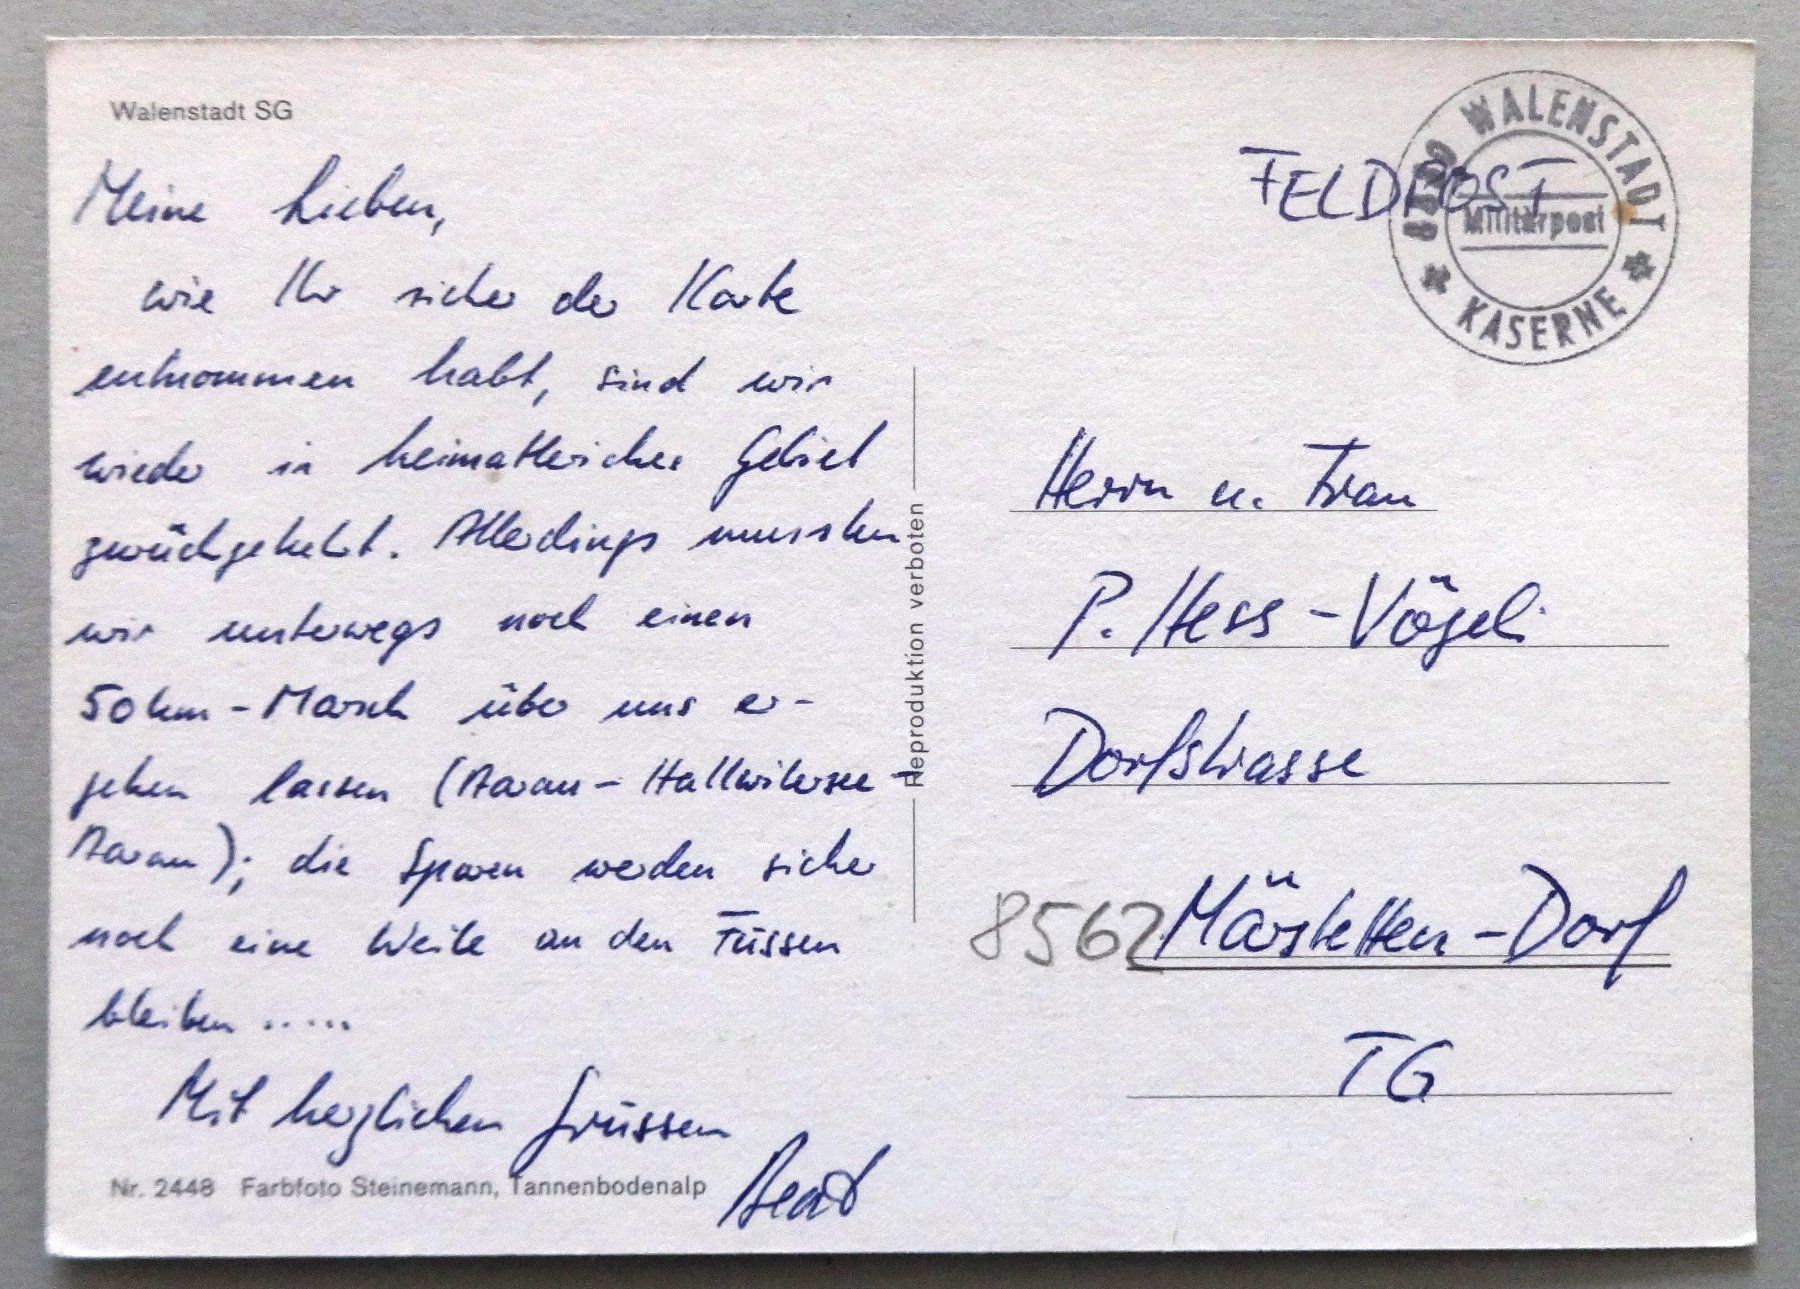 Walenstadt SG
Meine Lieben,
wie Ihr sicher der Karte
entnommen habt, sind wir
wieder in heimatliches Gebiet
zurückgekehrt. Allerdings mussten
wir unterwegs noch einen
50km-Marsch über uns er-
gehen lassen (Aarau-Hallwilersee-
Aarau); die Spuren werden sicher
noch eine Weile an den Füssen
bleiben.....
Mit herzlichen Grüssen
Beat
Nr. 2448 Farbfoto Steinemann, Tannenbodenalp
Reproduktion verboten
FELDPOST
8880 WALENSTADT
Militärpost
* KASERNE *
Herrn u. Frau
P. Hess-Vögeli
Dorfstrasse
8562 Märstetten-Dorf
TG